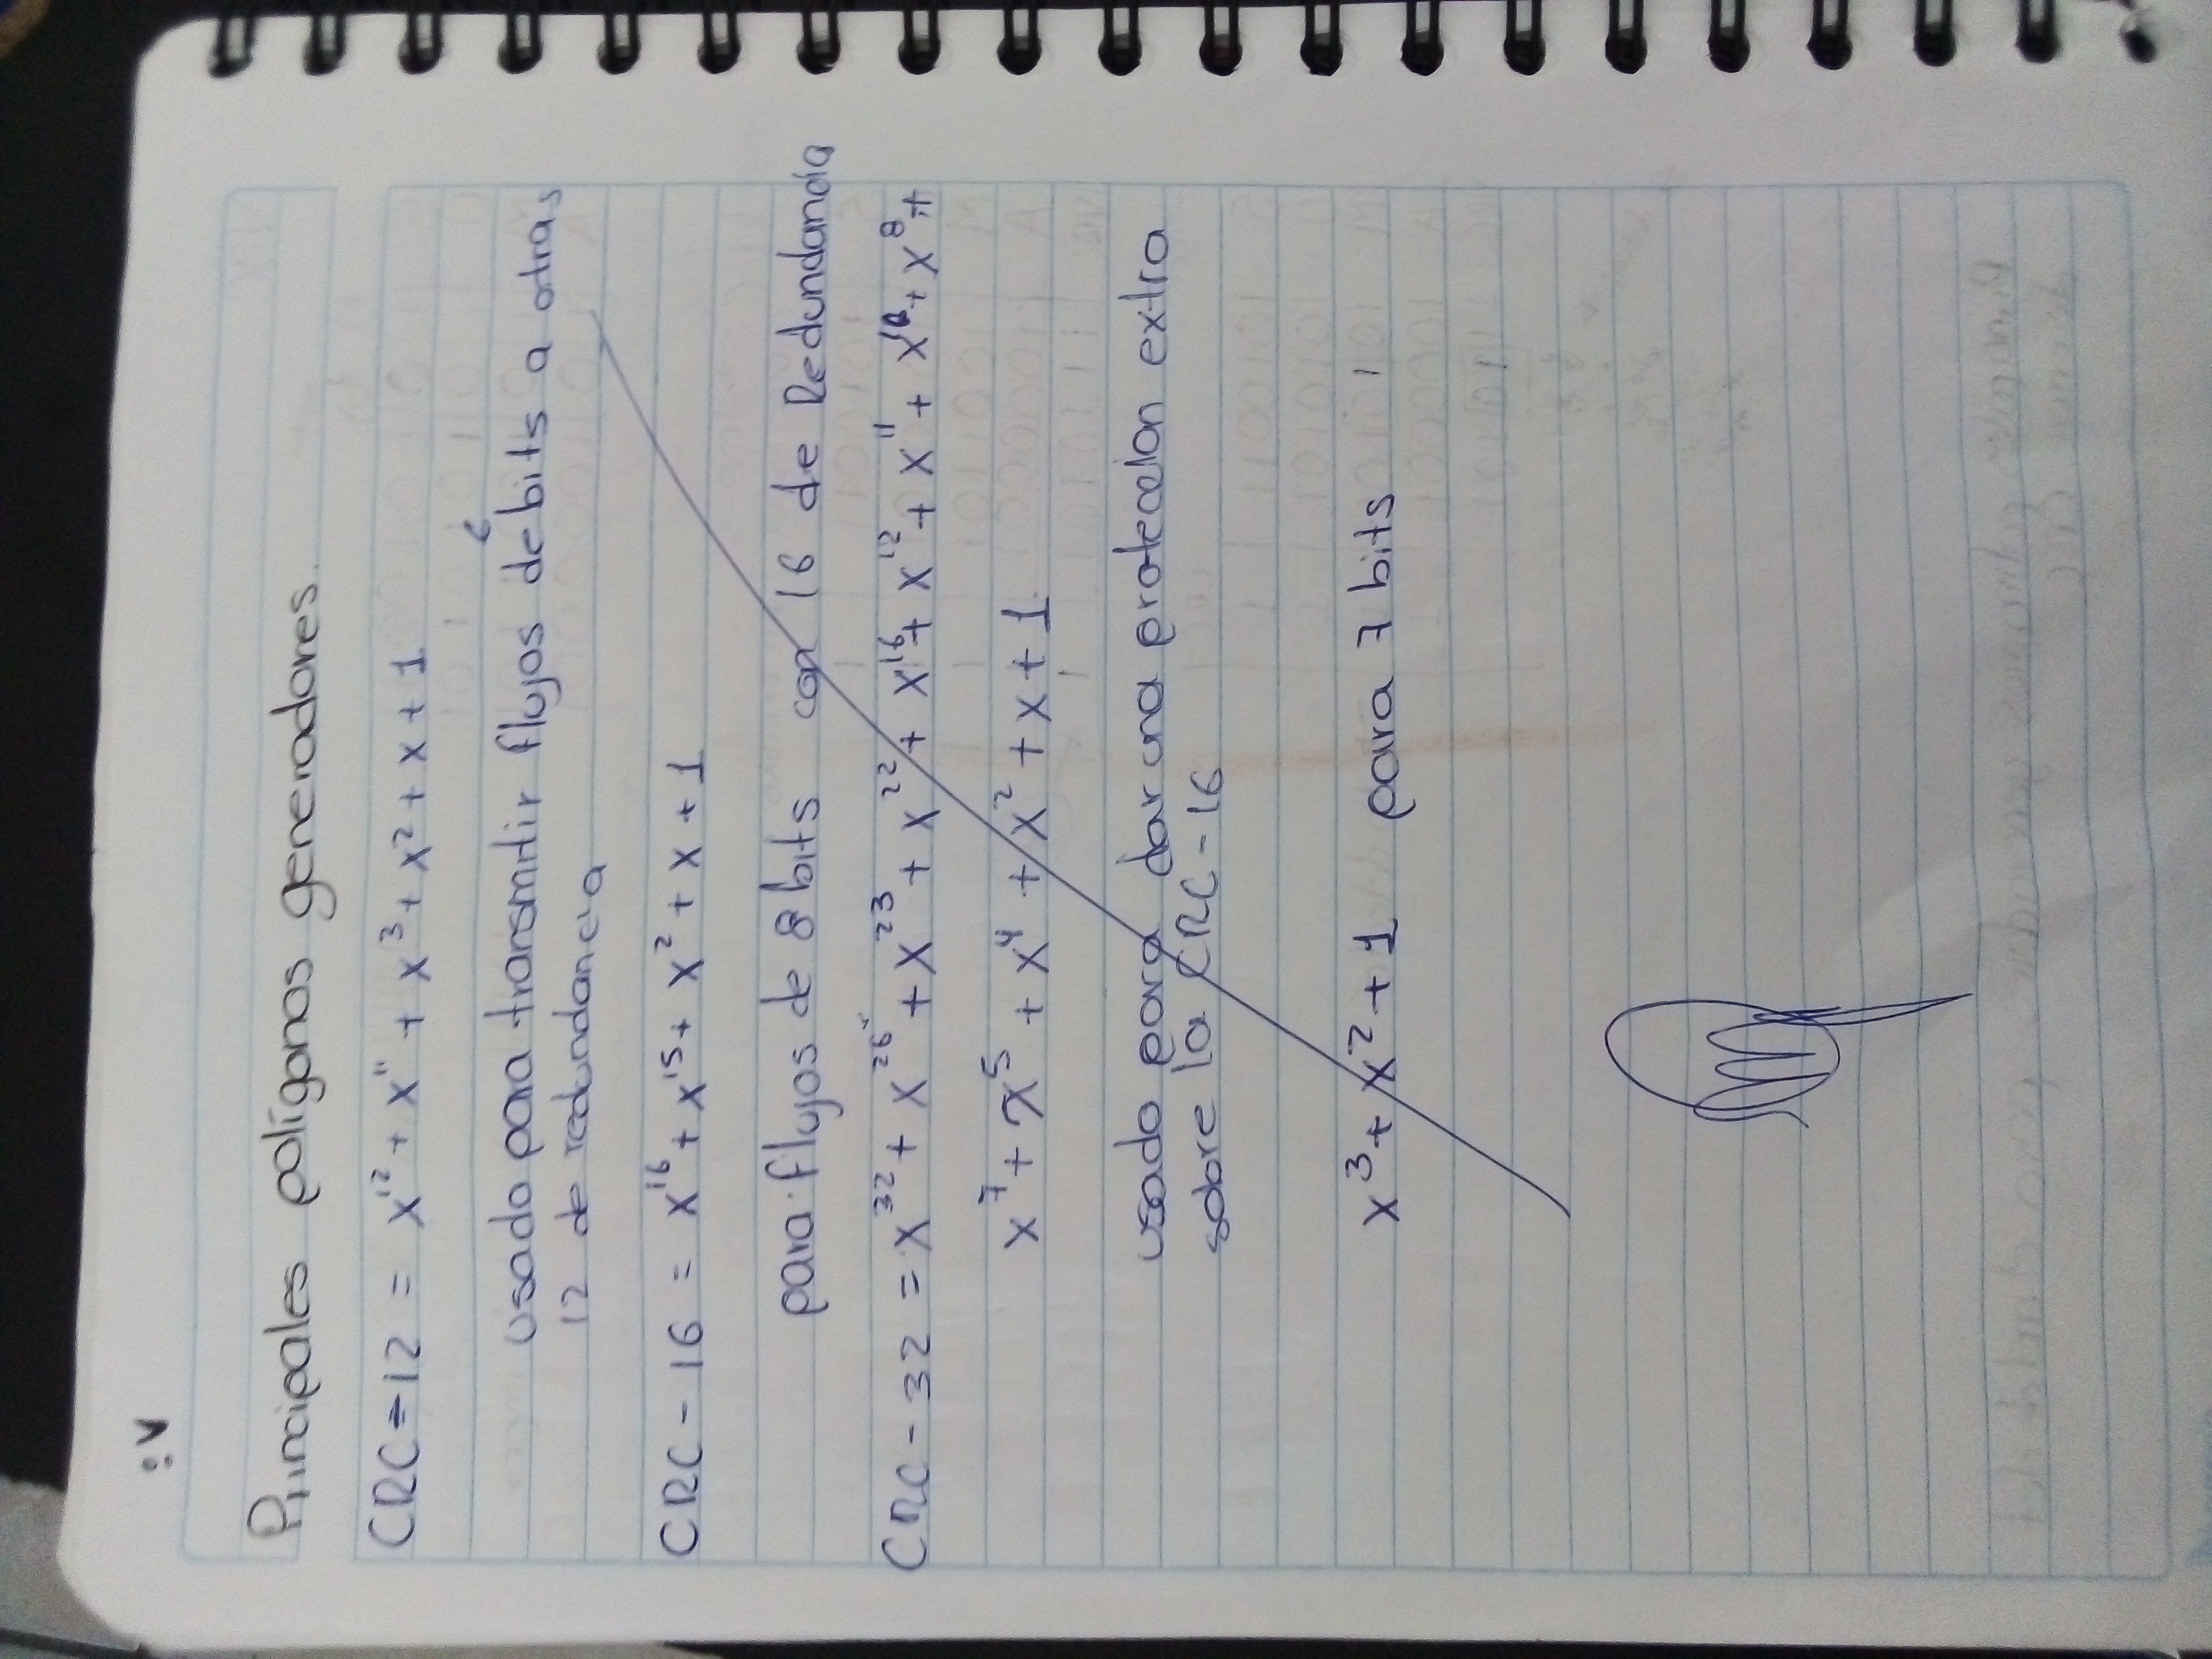 :V
Principales polígonos generadores.
CRC-12 = x¹² + x¹¹ + x³ + x² + x + 1
6
usado para transmitir flujos de bits a otras
12 de redundancia
CRC - 16 = x¹⁶ + x¹⁵ + x² + x + 1
para flujos de 8 bits con 16 de Redundancia
CRC - 32 = x³² + x²⁶ + x²³ + x²² + x¹⁶ + x¹² + x¹¹ + x¹⁰ + x⁸ +
x⁷ + x⁵ + x⁴ + x² + x + 1
usado para dar una proteccion extra
sobre la CRC - 16
x³ + x² + 1 para 7 bits